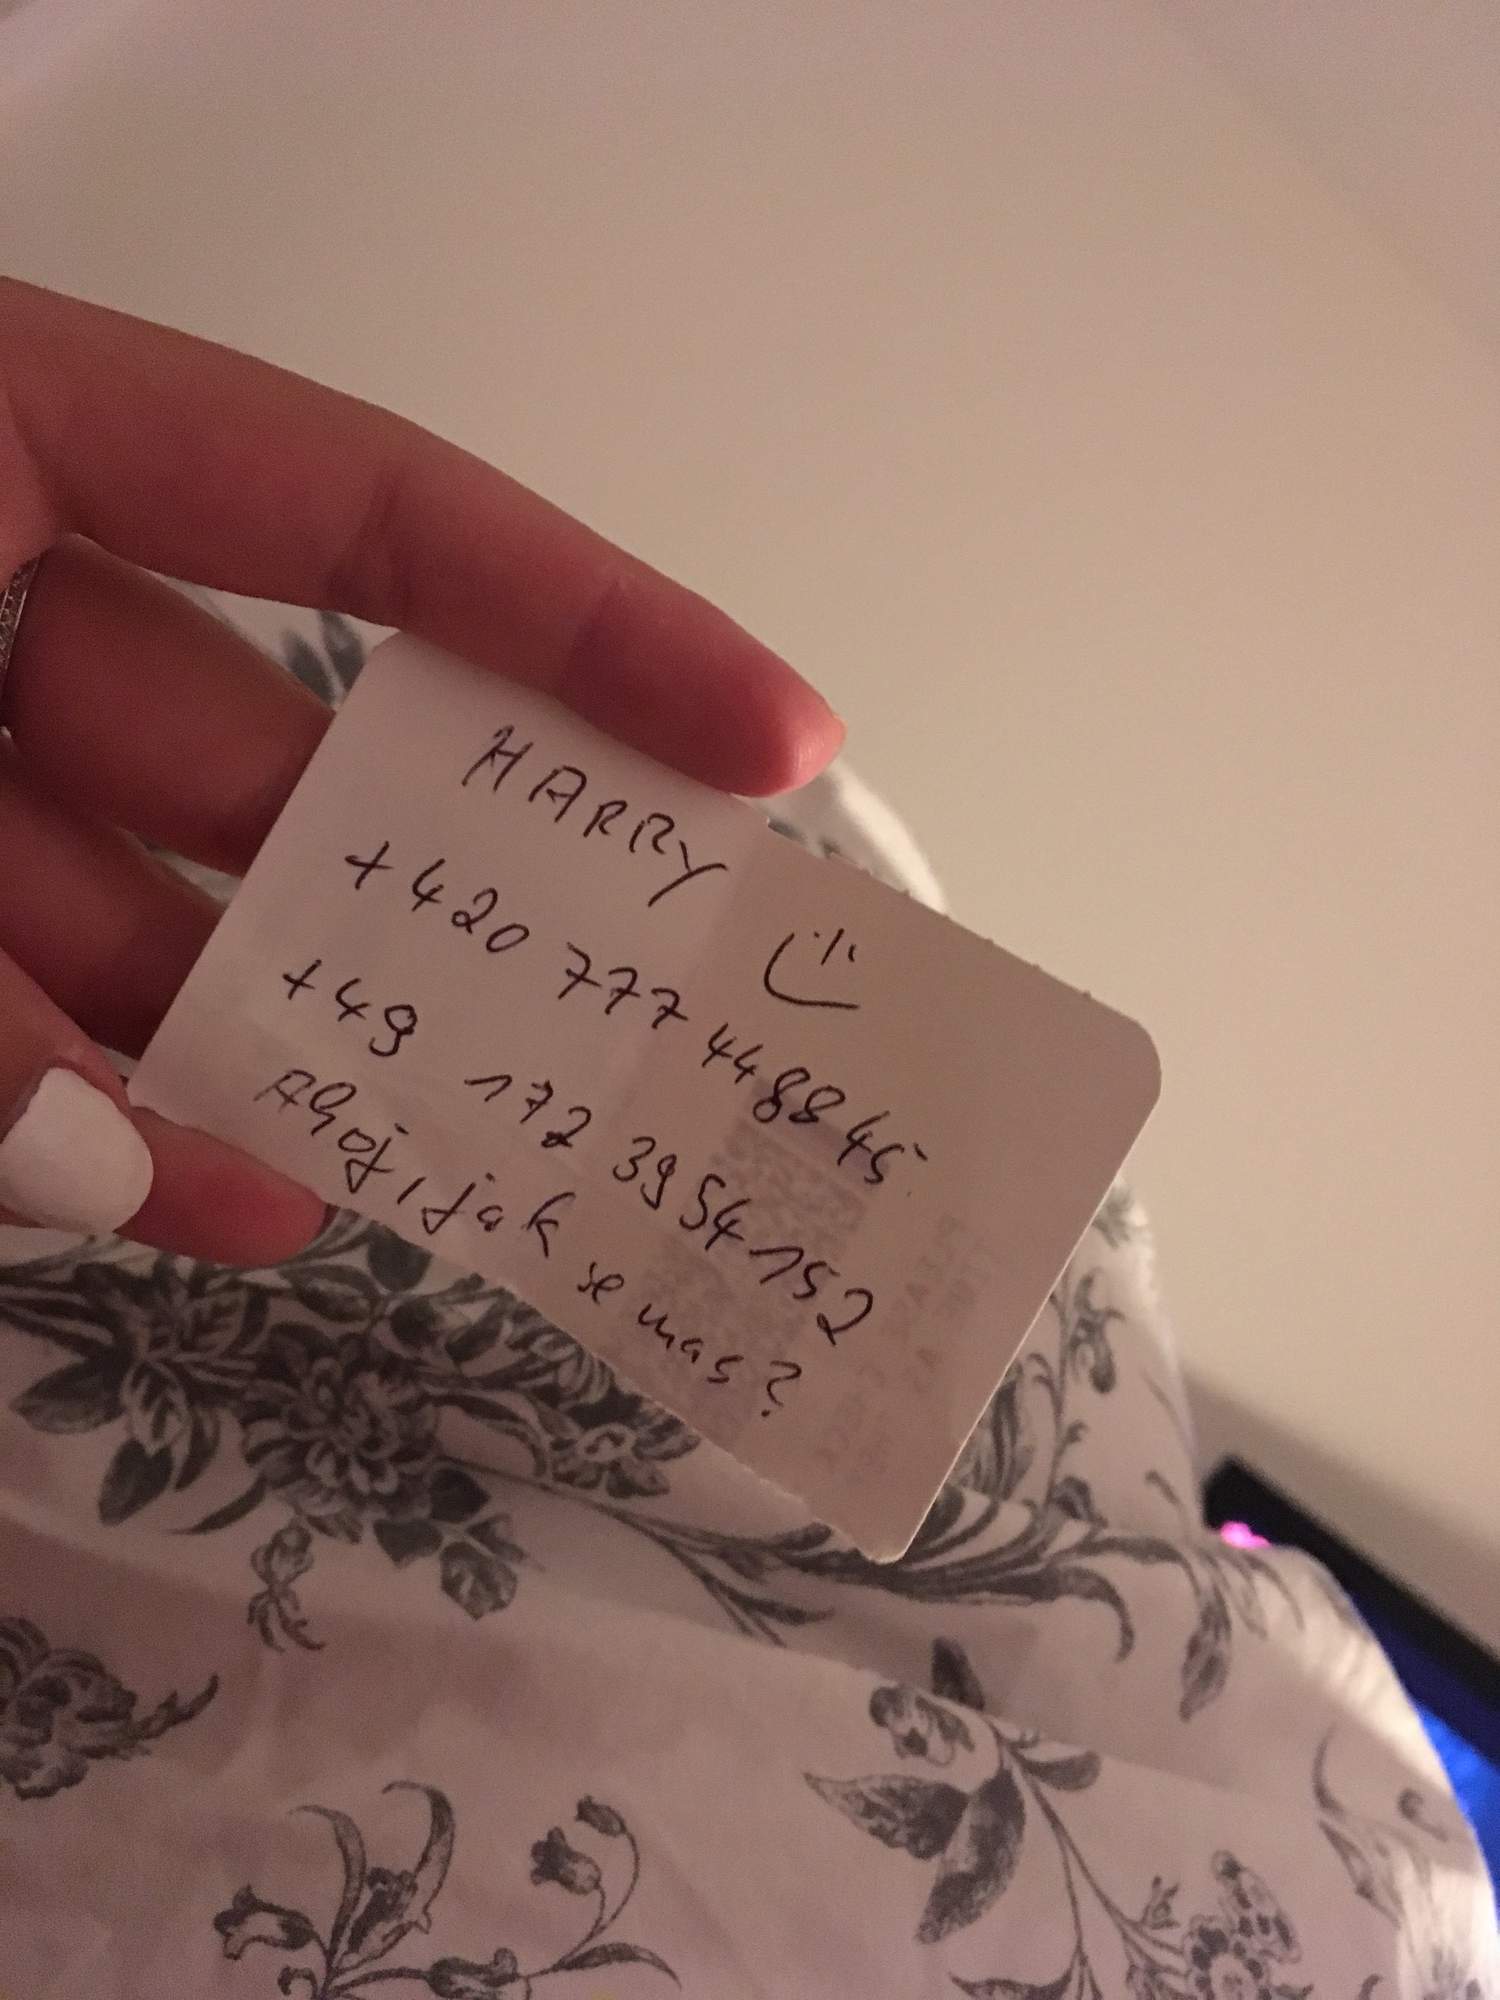 HARRY
+420 777 4488 45
+49 172 3954152
Ahoj, jak se mas?